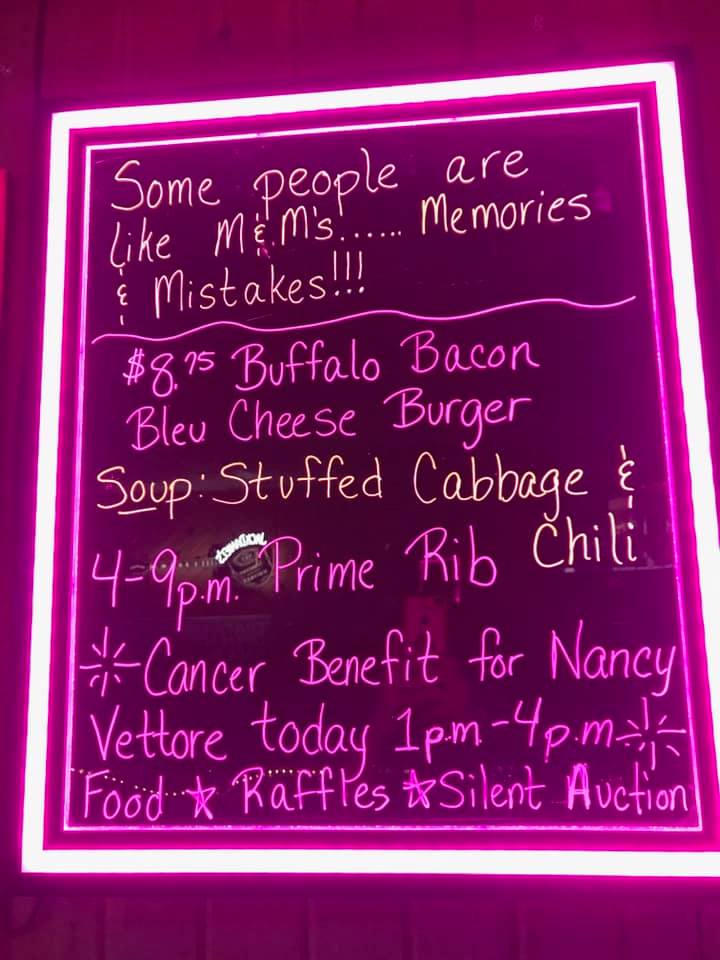 Some people are
like M&M's...... Memories
& Mistakes!!!
$8.75 Buffalo Bacon
Bleu Cheese Burger
Soup: Stuffed Cabbage &
Chili
4-9p.m. Prime Rib
Cancer Benefit for Nancy
Vettore today 1p.m-4p.m
Food ☆ Raffles ☆ Silent Auction